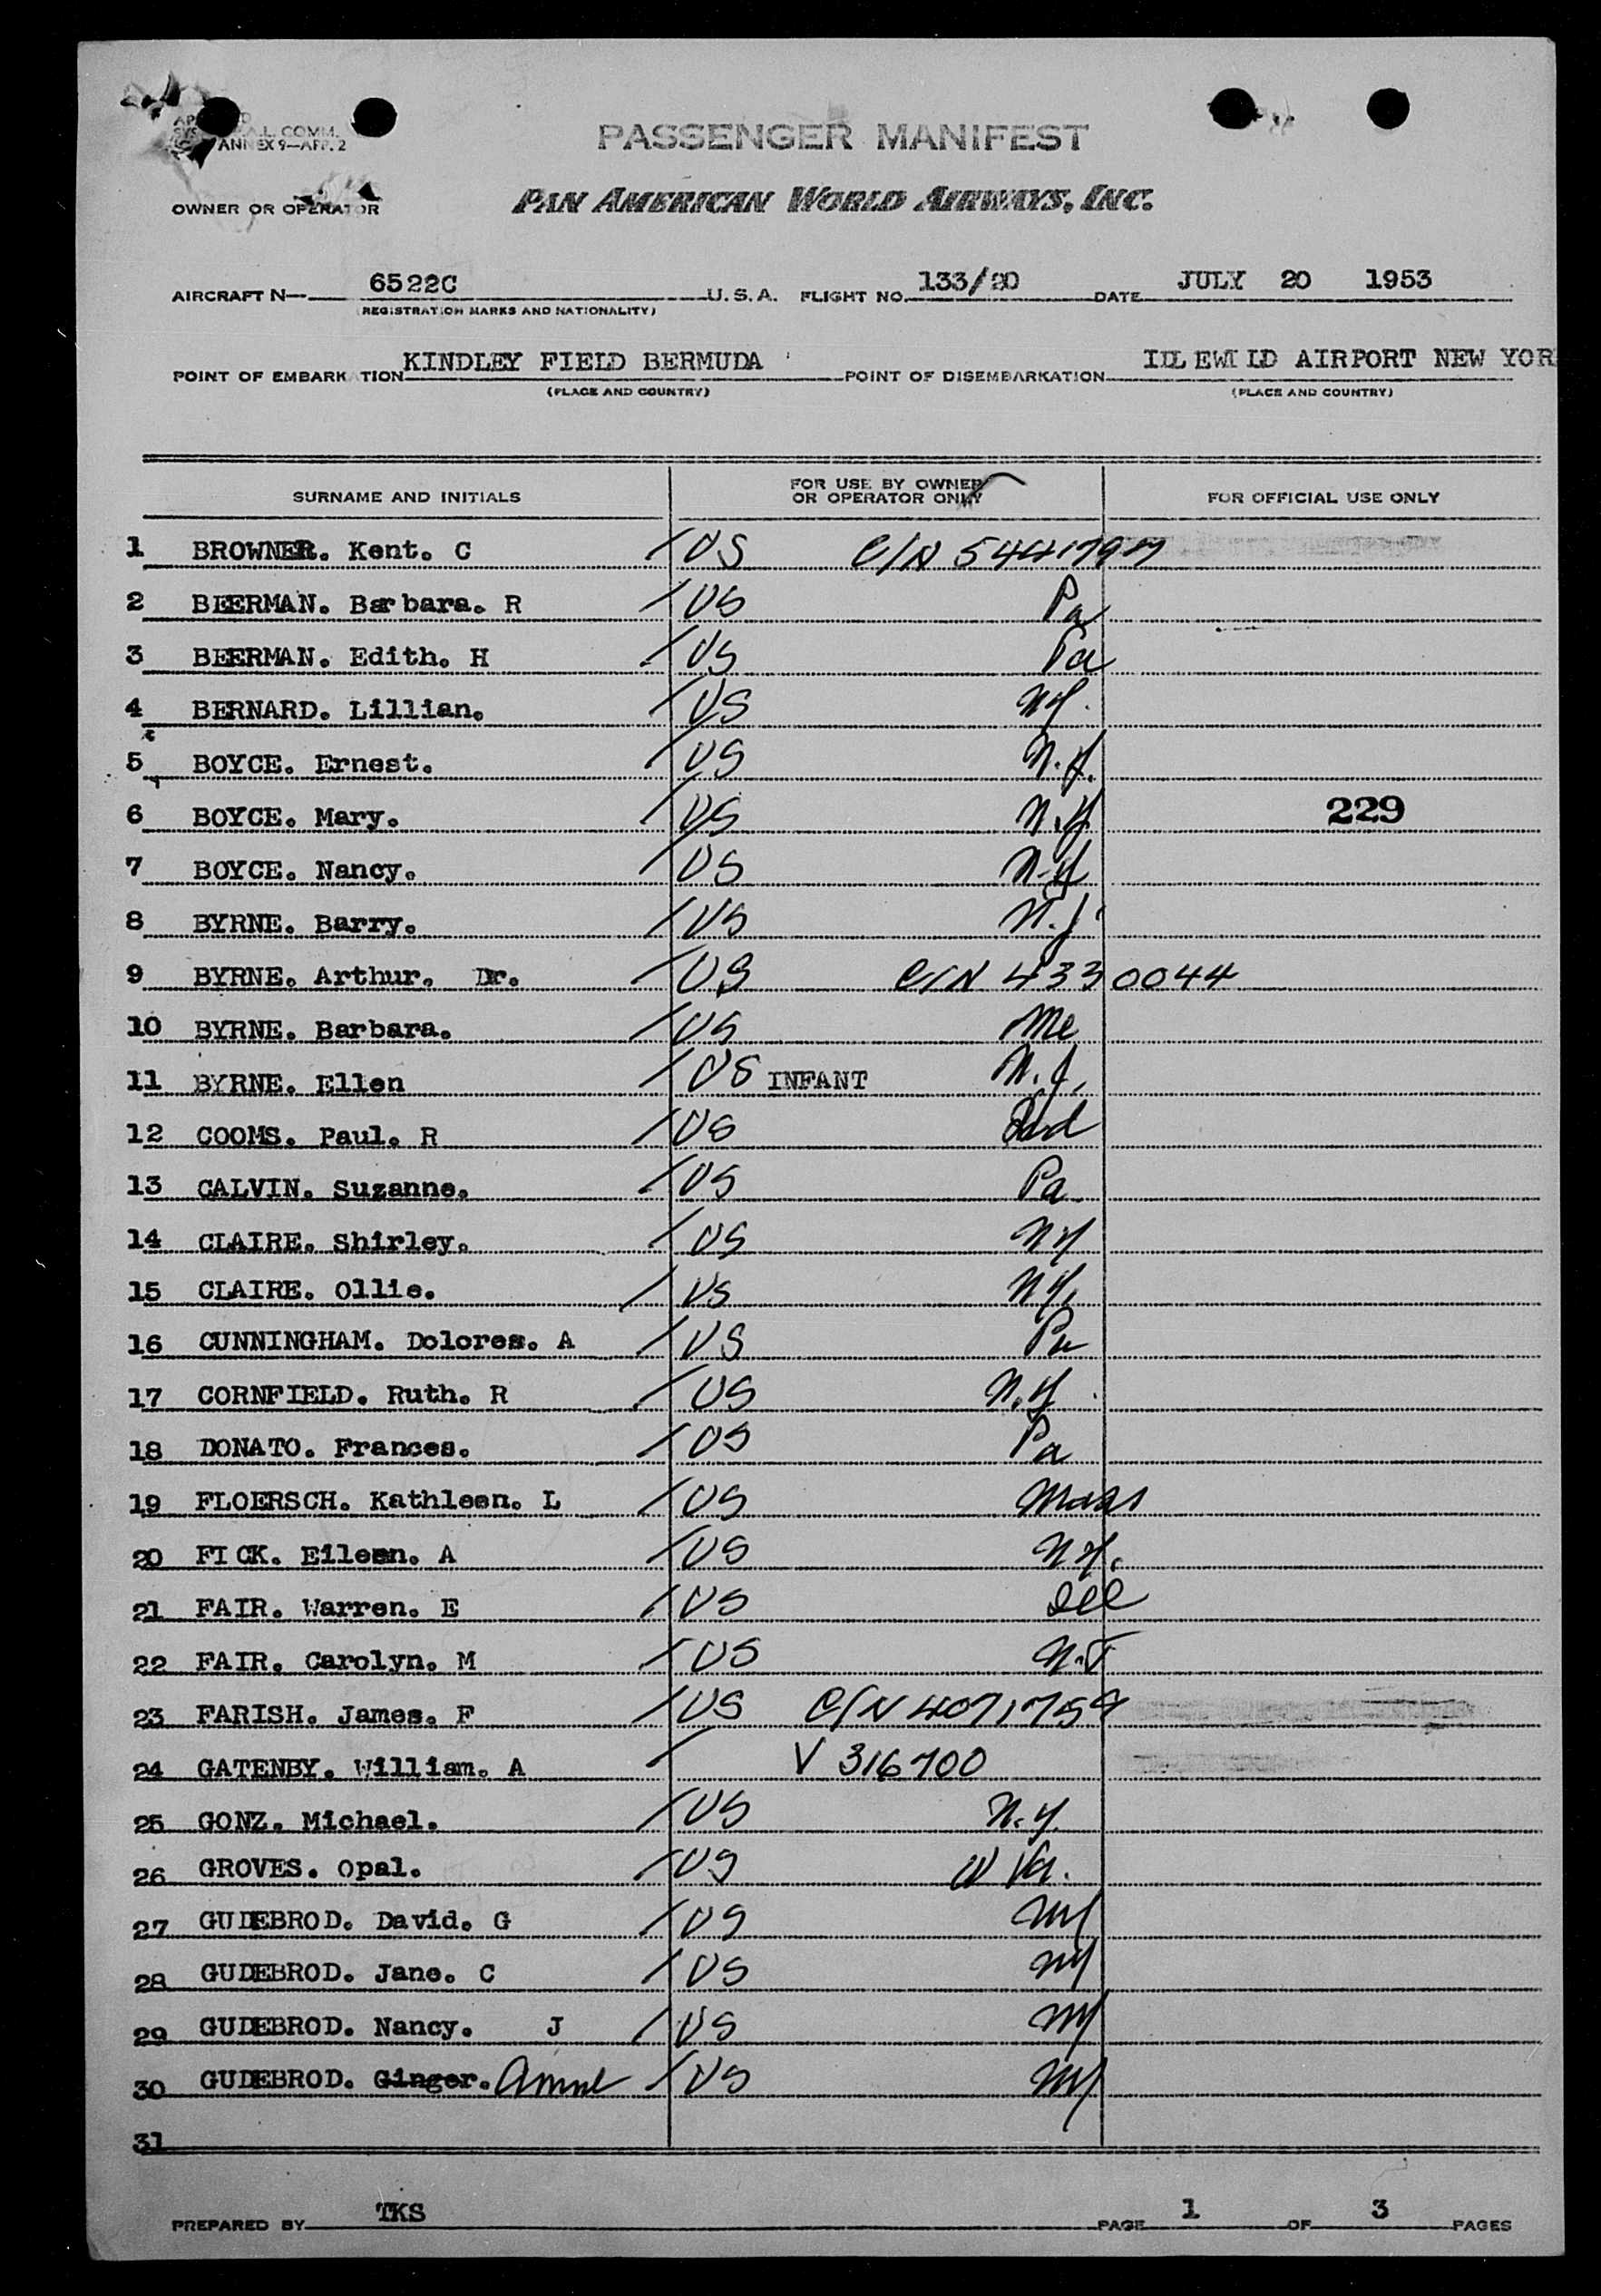 ANNEX 9—APP. 2
PASSENGER MANIFEST
OWNER OR OPERATOR PAN AMERICAN WORLD AIRWAYS, INC.
AIRCRAFT N— 6522C U. S. A. FLIGHT NO. 133/20 DATE JULY 20 1953
(REGISTRATION MARKS AND NATIONALITY)
POINT OF EMBARKATION KINDLEY FIELD BERMUDA POINT OF DISEMBARKATION IDLEWILD AIRPORT NEW YOR
(PLACE AND COUNTRY) (PLACE AND COUNTRY)
SURNAME AND INITIALS FOR USE BY OWNER OR OPERATOR ONLY FOR OFFICIAL USE ONLY
1 BROWNER. Kent. C / US C/N 5441797
2 BEERMAN. Barbara. R / US Pa
3 BEERMAN. Edith. H / US Pa
4 BERNARD. Lillian. / US NY.
5 BOYCE. Ernest. / US N.Y.
6 BOYCE. Mary. / US N.Y 229
7 BOYCE. Nancy. / US N.Y
8 BYRNE. Barry. / US N.J.
9 BYRNE. Arthur. Dr. / US C/N 4330044
10 BYRNE. Barbara. / US Me
11 BYRNE. Ellen / US INFANT N.J.
12 COOMS. Paul. R / US Ind
13 CALVIN. Suzanne. / US Pa
14 CLAIRE. Shirley. / US NY
15 CLAIRE. Ollie. / US NY.
16 CUNNINGHAM. Dolores. A / US Pa
17 CORNFIELD. Ruth. R / US N.Y
18 DONATO. Frances. / US Pa
19 FLOERSCH. Kathleen. L / US Mass
20 FICK. Eileen. A / US N.Y.
21 FAIR. Warren. E / US Ill
22 FAIR. Carolyn. M / US N.J
23 FARISH. James. F / US C/N 4071759
24 GATENBY. William. A / V 316700
25 GONZ. Michael. / US N.Y.
26 GROVES. Opal. / US W Va.
27 GUDEBROD. David. G / US NY
28 GUDEBROD. Jane. C / US NY
29 GUDEBROD. Nancy. J / US NY
30 GUDEBROD. Ginger. Anne / US NY
31
PREPARED BY TKS PAGE 1 OF 3 PAGES